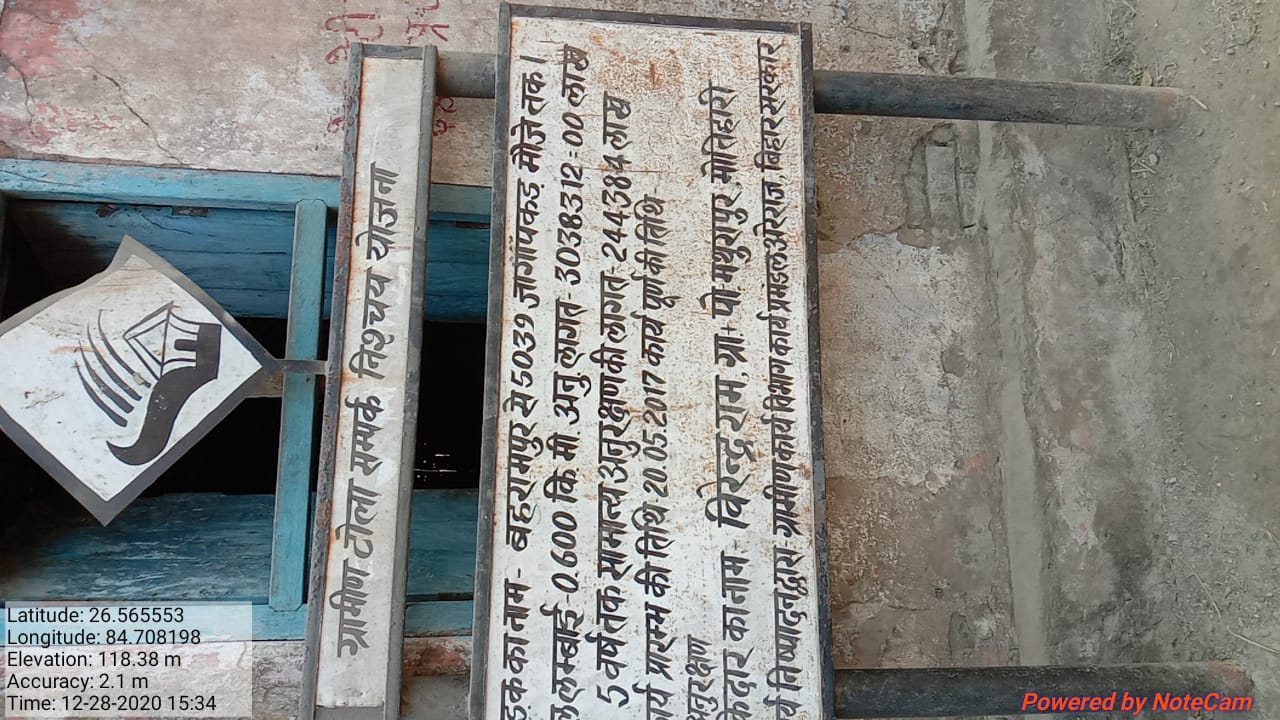 ग्रामीण टोला सम्पर्क निश्चय योजना
ड़क का नाम - बहरामपुर से 5039 जागापकड़ मौजे तक।
ल लम्बाई 0.600 कि.मी. अनु लागत 3038312=00 लाख
5 वर्ष तक सामान्य अनुरक्षण की लागत 244384 लाख
कार्य प्रारम्भ की तिथि 20.05.2017 कार्य पूर्ण की तिथि
अनुरक्षण
केदार का नाम - विरेन्द्र राम, ग्रा+ पो मथुरापुर, मोतिहारी
र्य निष्पादन द्वारा- ग्रामीण कार्य विभाग कार्य प्रमंडल अरेराज, बिहार सरकार
Latitude: 26.565553
Longitude: 84.708198
Elevation: 118.38 m
Accuracy: 2.1 m
Time: 12-28-2020 15:34
Powered by NoteCam